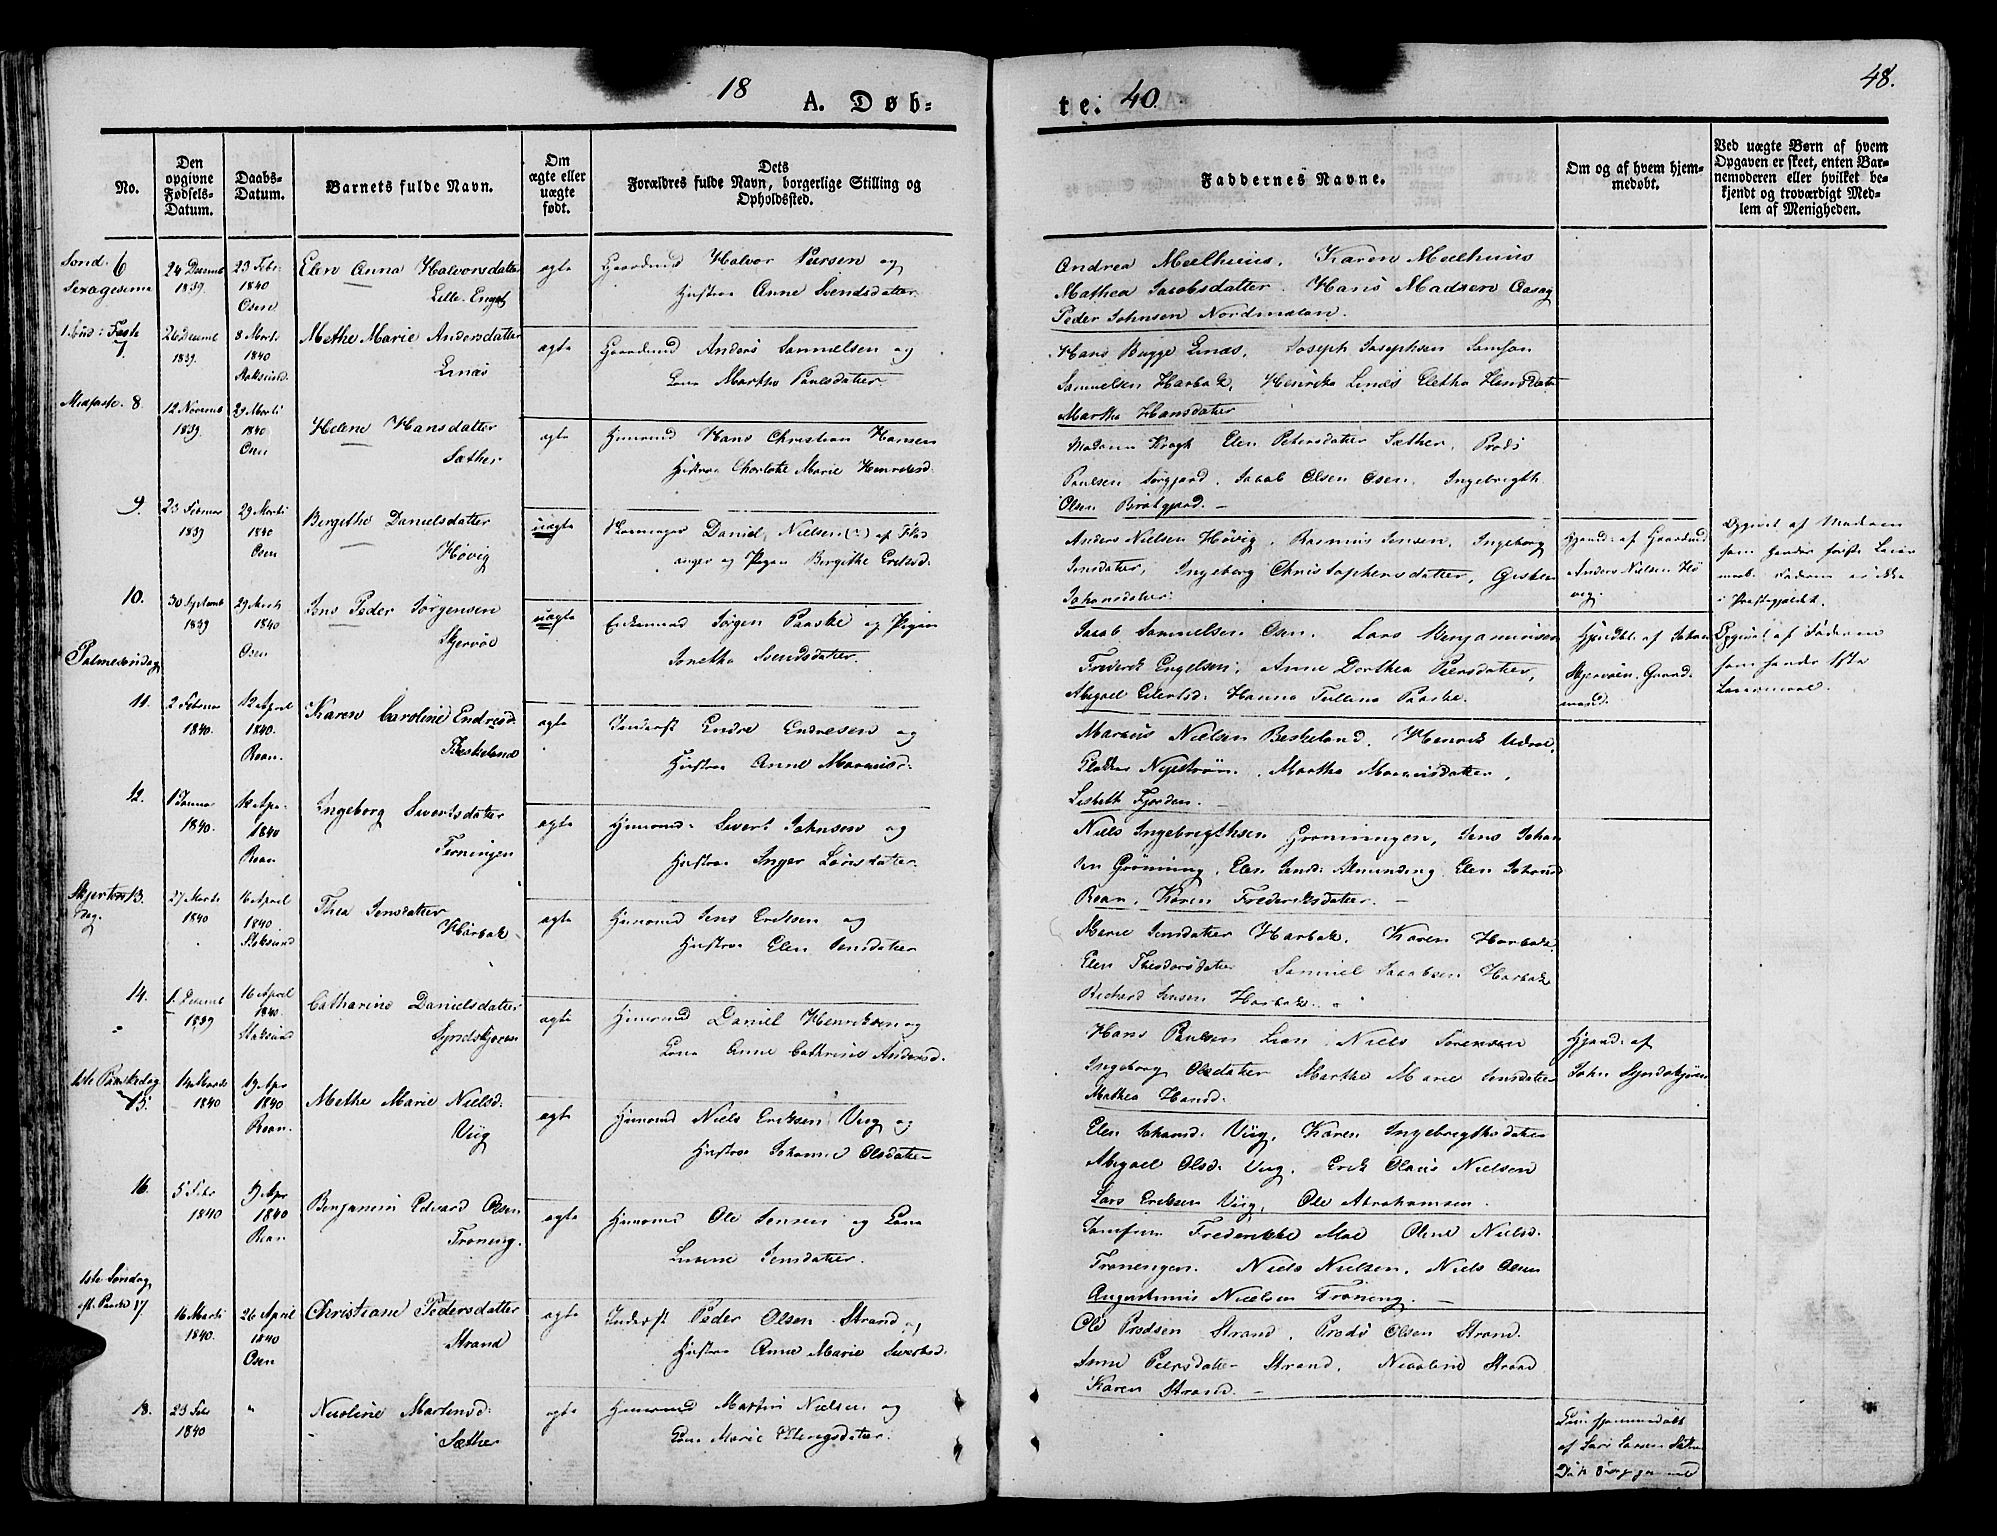 18
A. Døb-
te.
40.
48.
No.
Den
opgivne
Fødsels-
Datum.
Daabs-
Datum.
Barnets fulde Navn.
Om
ægte eller
uægte
født.
Dets
Forældres fulde Navn, borgerlige Stilling og
Opholdssted.
Faddernes Navne.
Om og af hvem hjem-
medøbt.
Ved uægte Børn af hvem
Opgaven er skeet, enten Bar-
nemoderen eller hvilket be-
kjendt og troværdigt Med-
lem af Menigheden.
Sond: 6
Sexagesima
24 Decemb
1839.
23 Febr
1840
Osen
Elen Anna Halvorsdatter
Lille-Engst
ægte
Gaardmd Halvor Pedersen og
Hustrue Anne Svendsdatter
Andrea Mælhuus, Karen Mælhuus
Mathea Jacobsdatter. Hans Madsen Aaseg
Peder Johnsen Nordmælan.
1 Sønd: Faste
7.
26 Decemb
1839.
8 Marts
1840
Stoksund.
Methe Marie Andersdatter
Linæs
ægte
Gaardmd Anders Samuelsen og
Kone Martha Paulsdatter
Hans Bugge Linæs, Joseph Josephsen Samson
Samuelsen Harbak, Henrikka Linæs Eletha Hansdatter
Martha Hansdatter
Midfaste. 8.
12 Novemb
1839.
29 Marti
1840
Osen
Helene Hansdatter
Sæther
ægte
Huusmd Hans Christian Hansen
Hustrue Charlotte Marie Henriksd.
Madame Krogh Elen Petersdatter Sæther, Prods
Paulsen Sørgjerd. Jacob Olsen Osen, Ingebrigth
Olsen Bratgjerd.
9.
23 Februar
1839
29 Marti
1840
Osen
Bergithe Danielsdatter
Høvig
uægte
Daniel Nielsen
anger og Pigen Bergithe Eriksd.
Anders Nielsen Høvig, Rasmus Jensen, Ingeborg
Jensdatter, Ingeborg Christophersdatter,
Johansdatter.
Hjemd: af Gaardmd
Anders Nielsen Hø
vig.
Opgivet af Moderen
som hendes første Leier
maal. Faderen er ikke
i Præstegjeldet.
10.
30 Septemb
1839
29 Marts
1840
Osen
Jens Peder Jørgensen
Skjervøe
uægte
Enkemand Jørgen Paaske og Pigen
Jonetha Svendsdatter.
Jacob Samuelsen Osen. Lars Benjaminsen
Frederik Engelsen, Anne Dorthea Peersdatter,
Abigael Eilertsd: Hanna Tullena Paaske.
Hjemdbt. af Johan
Skjervøen, Gaard-
mand.
Opgivet af Faderen
som hendes 1ste
Leiermaal.
Palmesøndag
11.
2 Februar
1840.
12 April
1840.
Roan.
Karen Caroline Endresd.
Beskeland
ægte
Inderst Endre Endresen og
Hustrue Anne Marcusd.
Marcus Nielsen Beskeland. Henrik Udroe,
Nystrøm, Martha Marcusdatter,
Lisbeth Fjorden.
12.
1 Januar
1840.
12 Apr.
1840
Roan
Ingeborg Sivertsdatter
Terningen
ægte
Huusmd: Sivert Johnsen og
Hustrue Inger Larsdatter.
Niels Ingebrigthsen Grønningen, Jens Johan
sen Grønning, Elen Jensd: Almunding, Elen Johansd
Roan, Karen Frederiksdatter.
Skjertors 13.
dag.
27 Marts
1840
16 April
1840
Stoksund
Thea Jensdatter
Harbak
ægte
Huusmd Jens Eriksen og
Hustrue Elen Jensdatter
Marie Jensdatter Harbak, Karen Harbak
Elen Theodorsdatter Samuel Jacobsen Harbak
Richard Jensen Harbak.
14.
"
1. Decemb
1839
16 April
1840.
Stoksund
Catharina Danielsdatter
Syndskjøren
ægte
Huusmd Daniel Henriksen og
Kone Anne Cathrine Andersd.
Hans Paulsen Lian. Niels Sørensen
Ingeborg Olsdatter Marthe Marie Jensdatter
Mathea Hansd.
Hjemd: af
John Syndskjøren
1ste Paaskedag
15.
14 Marts
1840
19 Apr
1840
Roan.
Methe Marie Nielsd.
Viig
ægte
Huusmd Niels Eriksen Viig og
Hustrue Johanna Olsdatter
Elen Johansd: Viig, Karen Ingebrigthsdatter
Abigael Olsd: Viig. Erik Olaus Nielsen
Lars Eriksen Viig, Ole Abrahamsen.
16.
5 Febr
1840
19 Apr
1840
Roan
Benjamin Edvard Olsen
Trøning.
ægte
Huusmd Ole Jensen og Kone
Jensdatter.
Jomfrue Frederikke Moe Oline Nielsd.
Trøningen. Niels Nielsen, Niels Olsen
Augustinus Nielsen Trøning.
1ste Søndag
eft. Paaske 17.
16 Marti
1840.
26 April
1840
Osen
Christiane Pedersdatter
Strand
ægte
Inderst Peder Olsen Strand og
Hustrue Anne Marie Sivertsd.
Ole Prodsen Strand, Prods Olsen Strand.
Peersdatter Strand, Nicoline Strand
Karen Strand.
18.
23 Febr
1840
"
Nicoline Martensd.
Sæther
ægte
Huusmd Martin Nielsen og
Kone Marie Ellingsdatter.
hjemmedøbt
af Lars Larsen Sæther